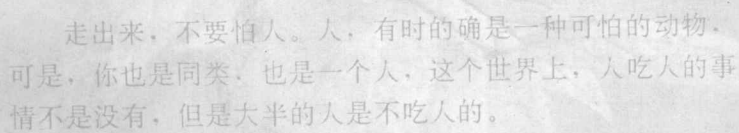 走出来，不要怕人。人，有时的确是一种可怕的动物，
可是，你也是同类，也是一个人，这个世界上，人吃人的事
情不是没有，但是大半的人是不吃人的。